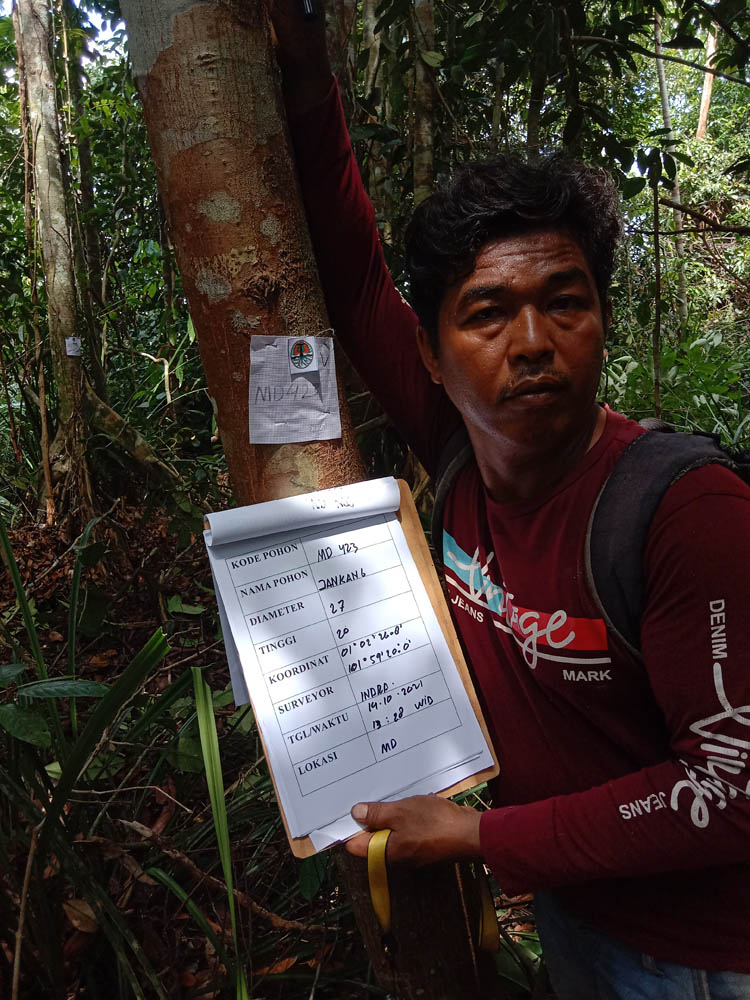 MD 423
KODE POHON MD 423
NAMA POHON JANKANG
DIAMETER 27
TINGGI 20
KOORDINAT 01° 02' 26.8'
101° 59' 20.0'
SURVEYOR INDRA.
TGL/WAKTU 19.10.2021
13:28 WIB
LOKASI MD
JEANS
MARK
DENIM
JEANS